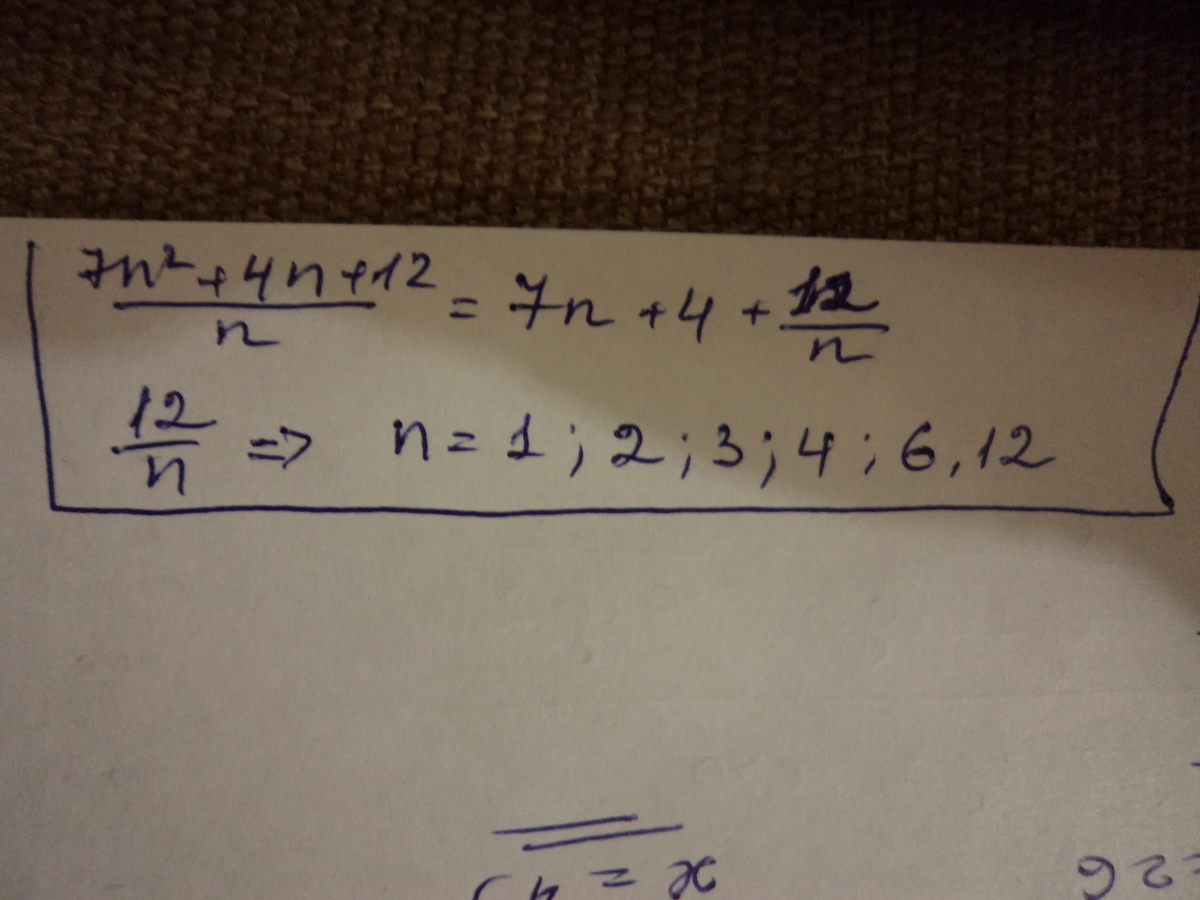 (7n²+4n+12)/n = 7n+4+12/n
12/n => n=1;2;3;4;6,12
= x
=26